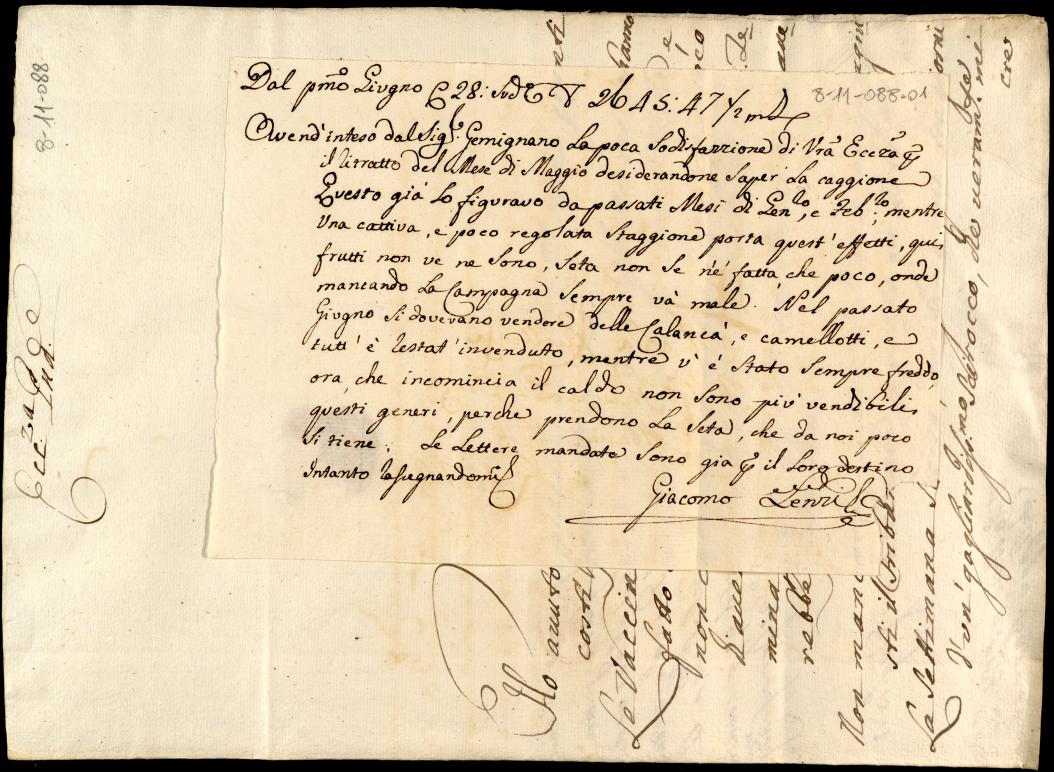 8-11-088
8-11-088-01
Dal pmo Giugno 28: 2645:47 1/2
Avend' inteso dal Sigr. Gemignano La poca Sodisfazzione di Vra Ecceza
il ritratto del Mese di Maggio desiderandone saper La caggione
Questo già Lo figuravo da passati Mesi di Genro, e Febro; mentre
Una cattiva, e poco regolata Staggione porta quest' effetti, qui
frutti non ve ne sono, Seta non se n'è fatta, che poco, onde
mancando La Campagna Sempre và male. Nel passato
Giugno si dovevano vendere delle Calancà, e camellotti, e
tutt' è restat' invenduto, mentre v' è stato sempre freddo,
ora, che incomincia il caldo non sono più vendibili
questi generi, perche prendono La Seta, che da noi poco
si tiene. Le Lettere mandate sono gia il Loro destino
Intanto rassegnandomi
Giacomo Lenzi
Ecc.za Pnd.e
Ho avuto
costi
Le Vaccin
fatto
non
mina
rebbe
Non man
sti il
La Settimana
d'un' gagliardissimo Scirocco, che veram. mi
cre